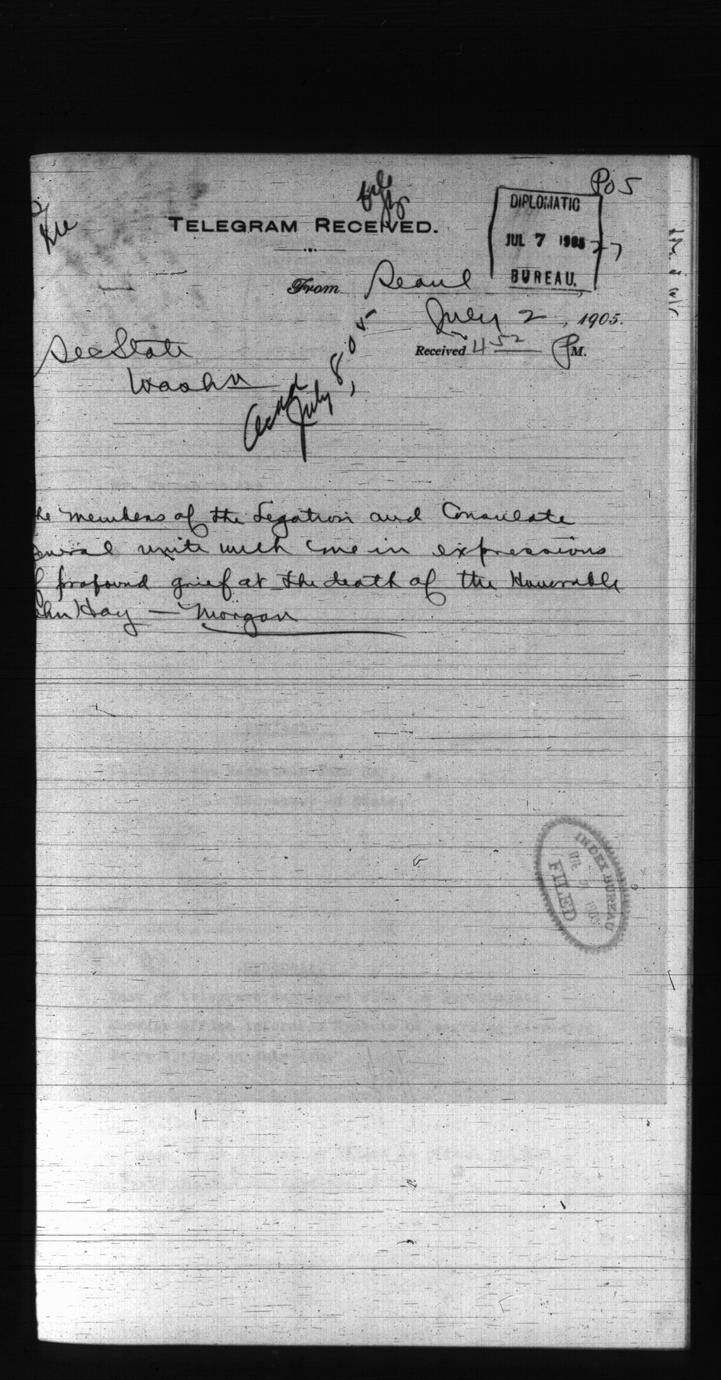 P O 5
TELEGRAM RECEIVED.
DIPLOMATIC
JUL 7 1905
BUREAU.
27
From Seoul
July 2, 1905.
Received 4 52 PM.
SecState
Washn
July 8, 05
he members of the Legation and Consulate
eneral unite with me in expressions
f profound grief at the death of the Honorable
ohn Hay — Morgan
INDEX BUREAU
1905
FILED